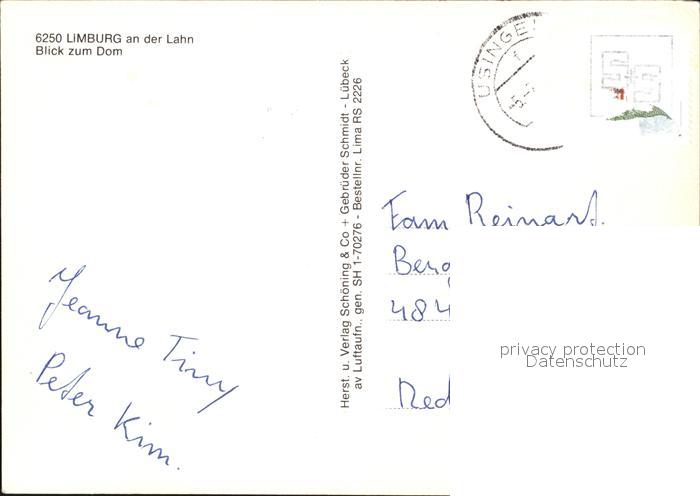 6250 LIMBURG an der Lahn
Blick zum Dom
USINGE
Herst. u. Verlag Schöning & Co + Gebrüder Schmidt - Lübeck
av Luftaufn., gen. SH 1-70276 - Bestellnr. Lima RS 2226
Fam Reinart.
Berg
484
Ned
Jeanne Tiny
Peter Kim.
privacy protection
Datenschutz